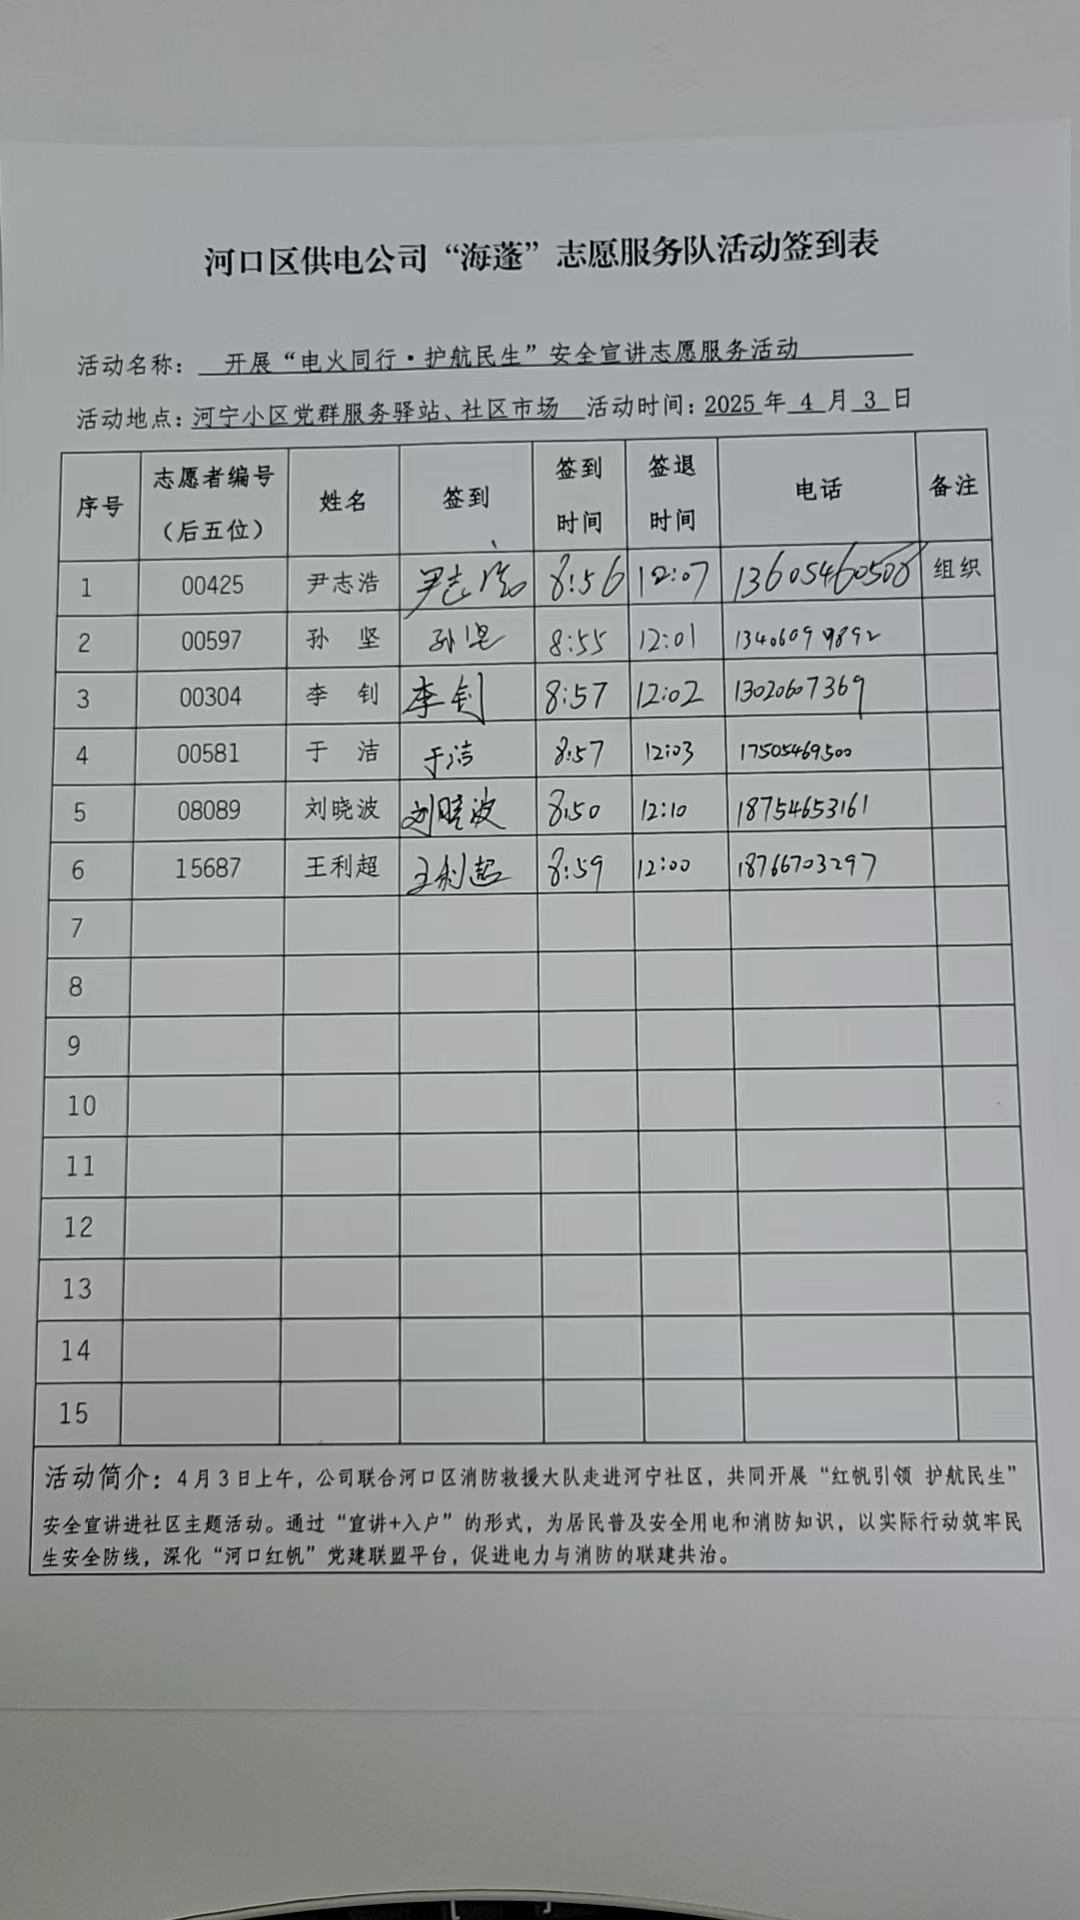 河口区供电公司“海蓬”志愿服务队活动签到表
活动名称： 开展“电火同行·护航民生”安全宣讲志愿服务活动
活动地点：河宁小区党群服务驿站、社区市场 活动时间：2025 年 4 月 3 日
序号 志愿者编号（后五位） 姓名 签到 签到时间 签退时间 电话 备注
1 00425 尹志浩 尹志浩 8:56 12:07 13605460508 组织
2 00597 孙 坚 孙坚 8:55 12:01 13406099892
3 00304 李 钊 李钊 8:57 12:02 13020607369
4 00581 于 洁 于洁 8:57 12:03 17505469500
5 08089 刘晓波 刘晓波 8:50 12:10 18754653161
6 15687 王利超 王利超 8:59 12:00 18766703297
7
8
9
10
11
12
13
14
15
活动简介：4月3日上午，公司联合河口区消防救援大队走进河宁社区，共同开展“红帆引领 护航民生”
安全宣讲进社区主题活动。通过“宣讲+入户”的形式，为居民普及安全用电和消防知识，以实际行动筑牢民
生安全防线，深化“河口红帆”党建联盟平台，促进电力与消防的联建共治。